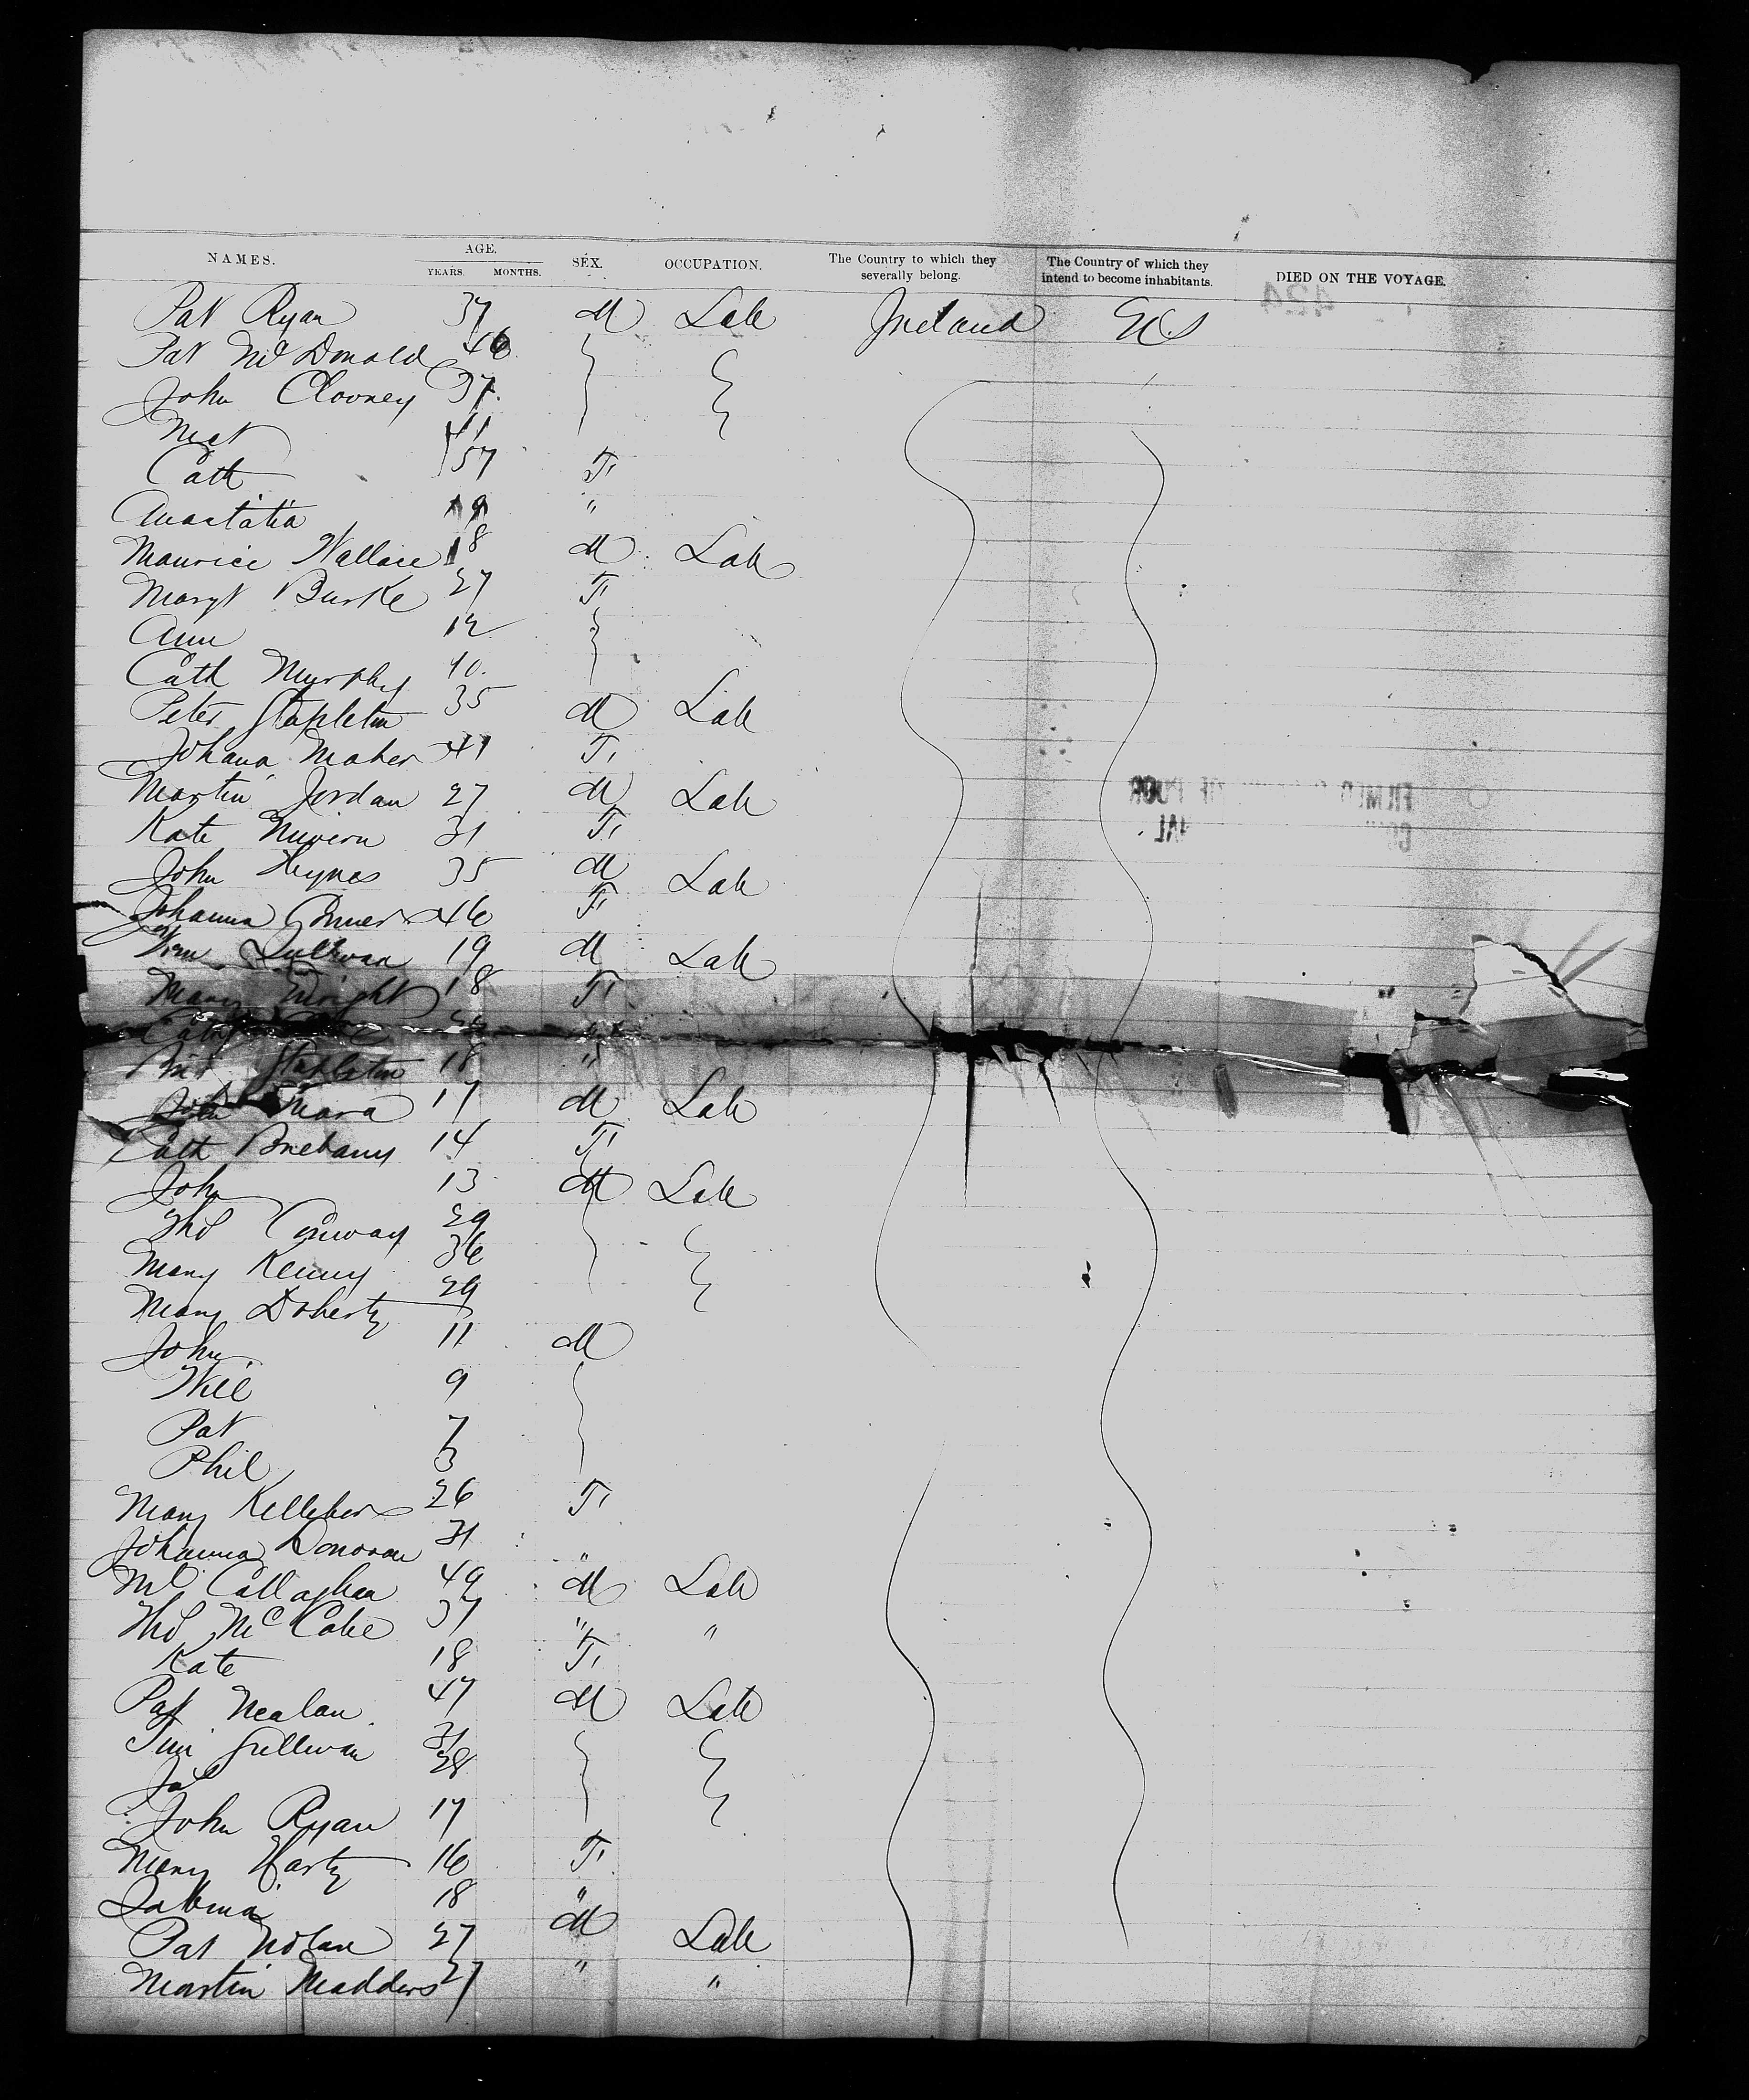 NAMES. AGE. YEARS. MONTHS. SEX. OCCUPATION. The Country to which they severally belong. The Country of which they intend to become inhabitants. DIED ON THE VOYAGE.
Pat Ryan 37 M Lab Ireland US
Pat McDonald 46
John Clooney 37
Mat 11
Cath 57 F
Anastatia 19 "
Maurice Wallace 18 M Lab
Margt Burke 27 F
Ann 12
Cath Murphy 40
Peter Stapleton 35 M Lab
Johana Maher 41 F
Martin Jordan 27 M Lab
Kate 31 F
John Hynes 35 M Lab
Johanna Conners 46 F
Wm Sullivan 19 M Lab
Mary Enright 18 F
Stapleton 18 "
John Mara 17 M Lab
Cath 14 F
John 13 M Lab
Thos Conway 29
Mary Kenny 36
Mary Doherty 29
John 11 M
Will 9
Pat 7
Phil 3
Mary Kelleher 26 F
Johanna Donovan 31 "
Ml Callaghan 49 M Lab
Thos McCabe 37 " "
Kate 18 F
Pat Nealan 47 M Lab
Tim Sullivan 31
Jas 28
John Ryan 17
Mary Harty 16 F
Sabina 18 "
Pat Nolan 27 M Lab
Martin Madders 27 " "